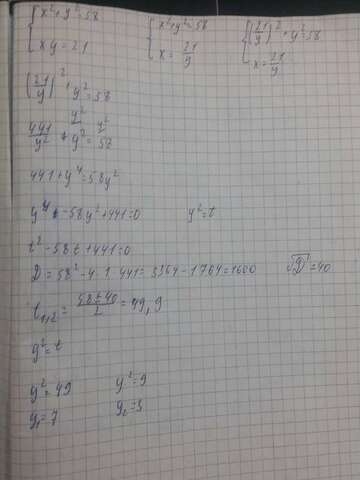 x²+y²=58   x²+y²=58   (21/y)²+y²=58
xy=21   x=21/y   x=21/y
(21/y)²+y²=58
441/y² + y² = 58
441+y⁴=58y²
y⁴-58y²+441=0   y²=t
t²-58t+441=0
D=58²-4·1·441=3364-1764=1600   √D=40
t₁,₂=58±40/2=49,9
y²=t
y²=49   y²=9
y₁=7   y₂=3